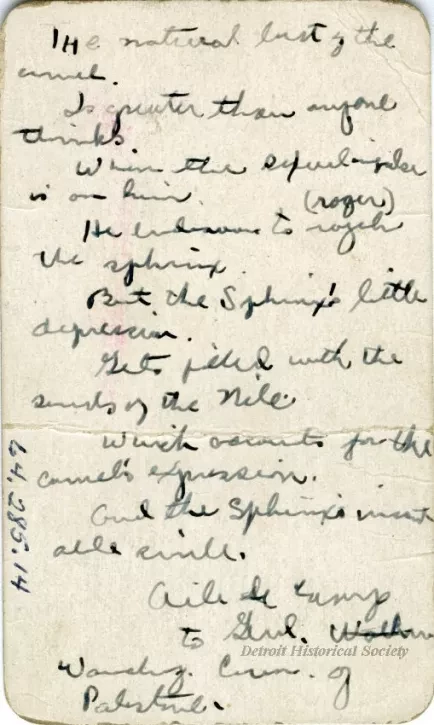 The natural lust of the
camel.
Is greater than anyone
thinks.
When the
is on him. (roger)
He endeavors to rogeh
the sphinx.
But the Sphinx's little
depression.
Gets filled with the
sands of the Nile.
Which accounts for the
camel's expression.
And the Sphinx's inscrut
able smile.
Aide de Camp
to Genl.
Detroit Historical Society
of
Palestine.
64.285.14